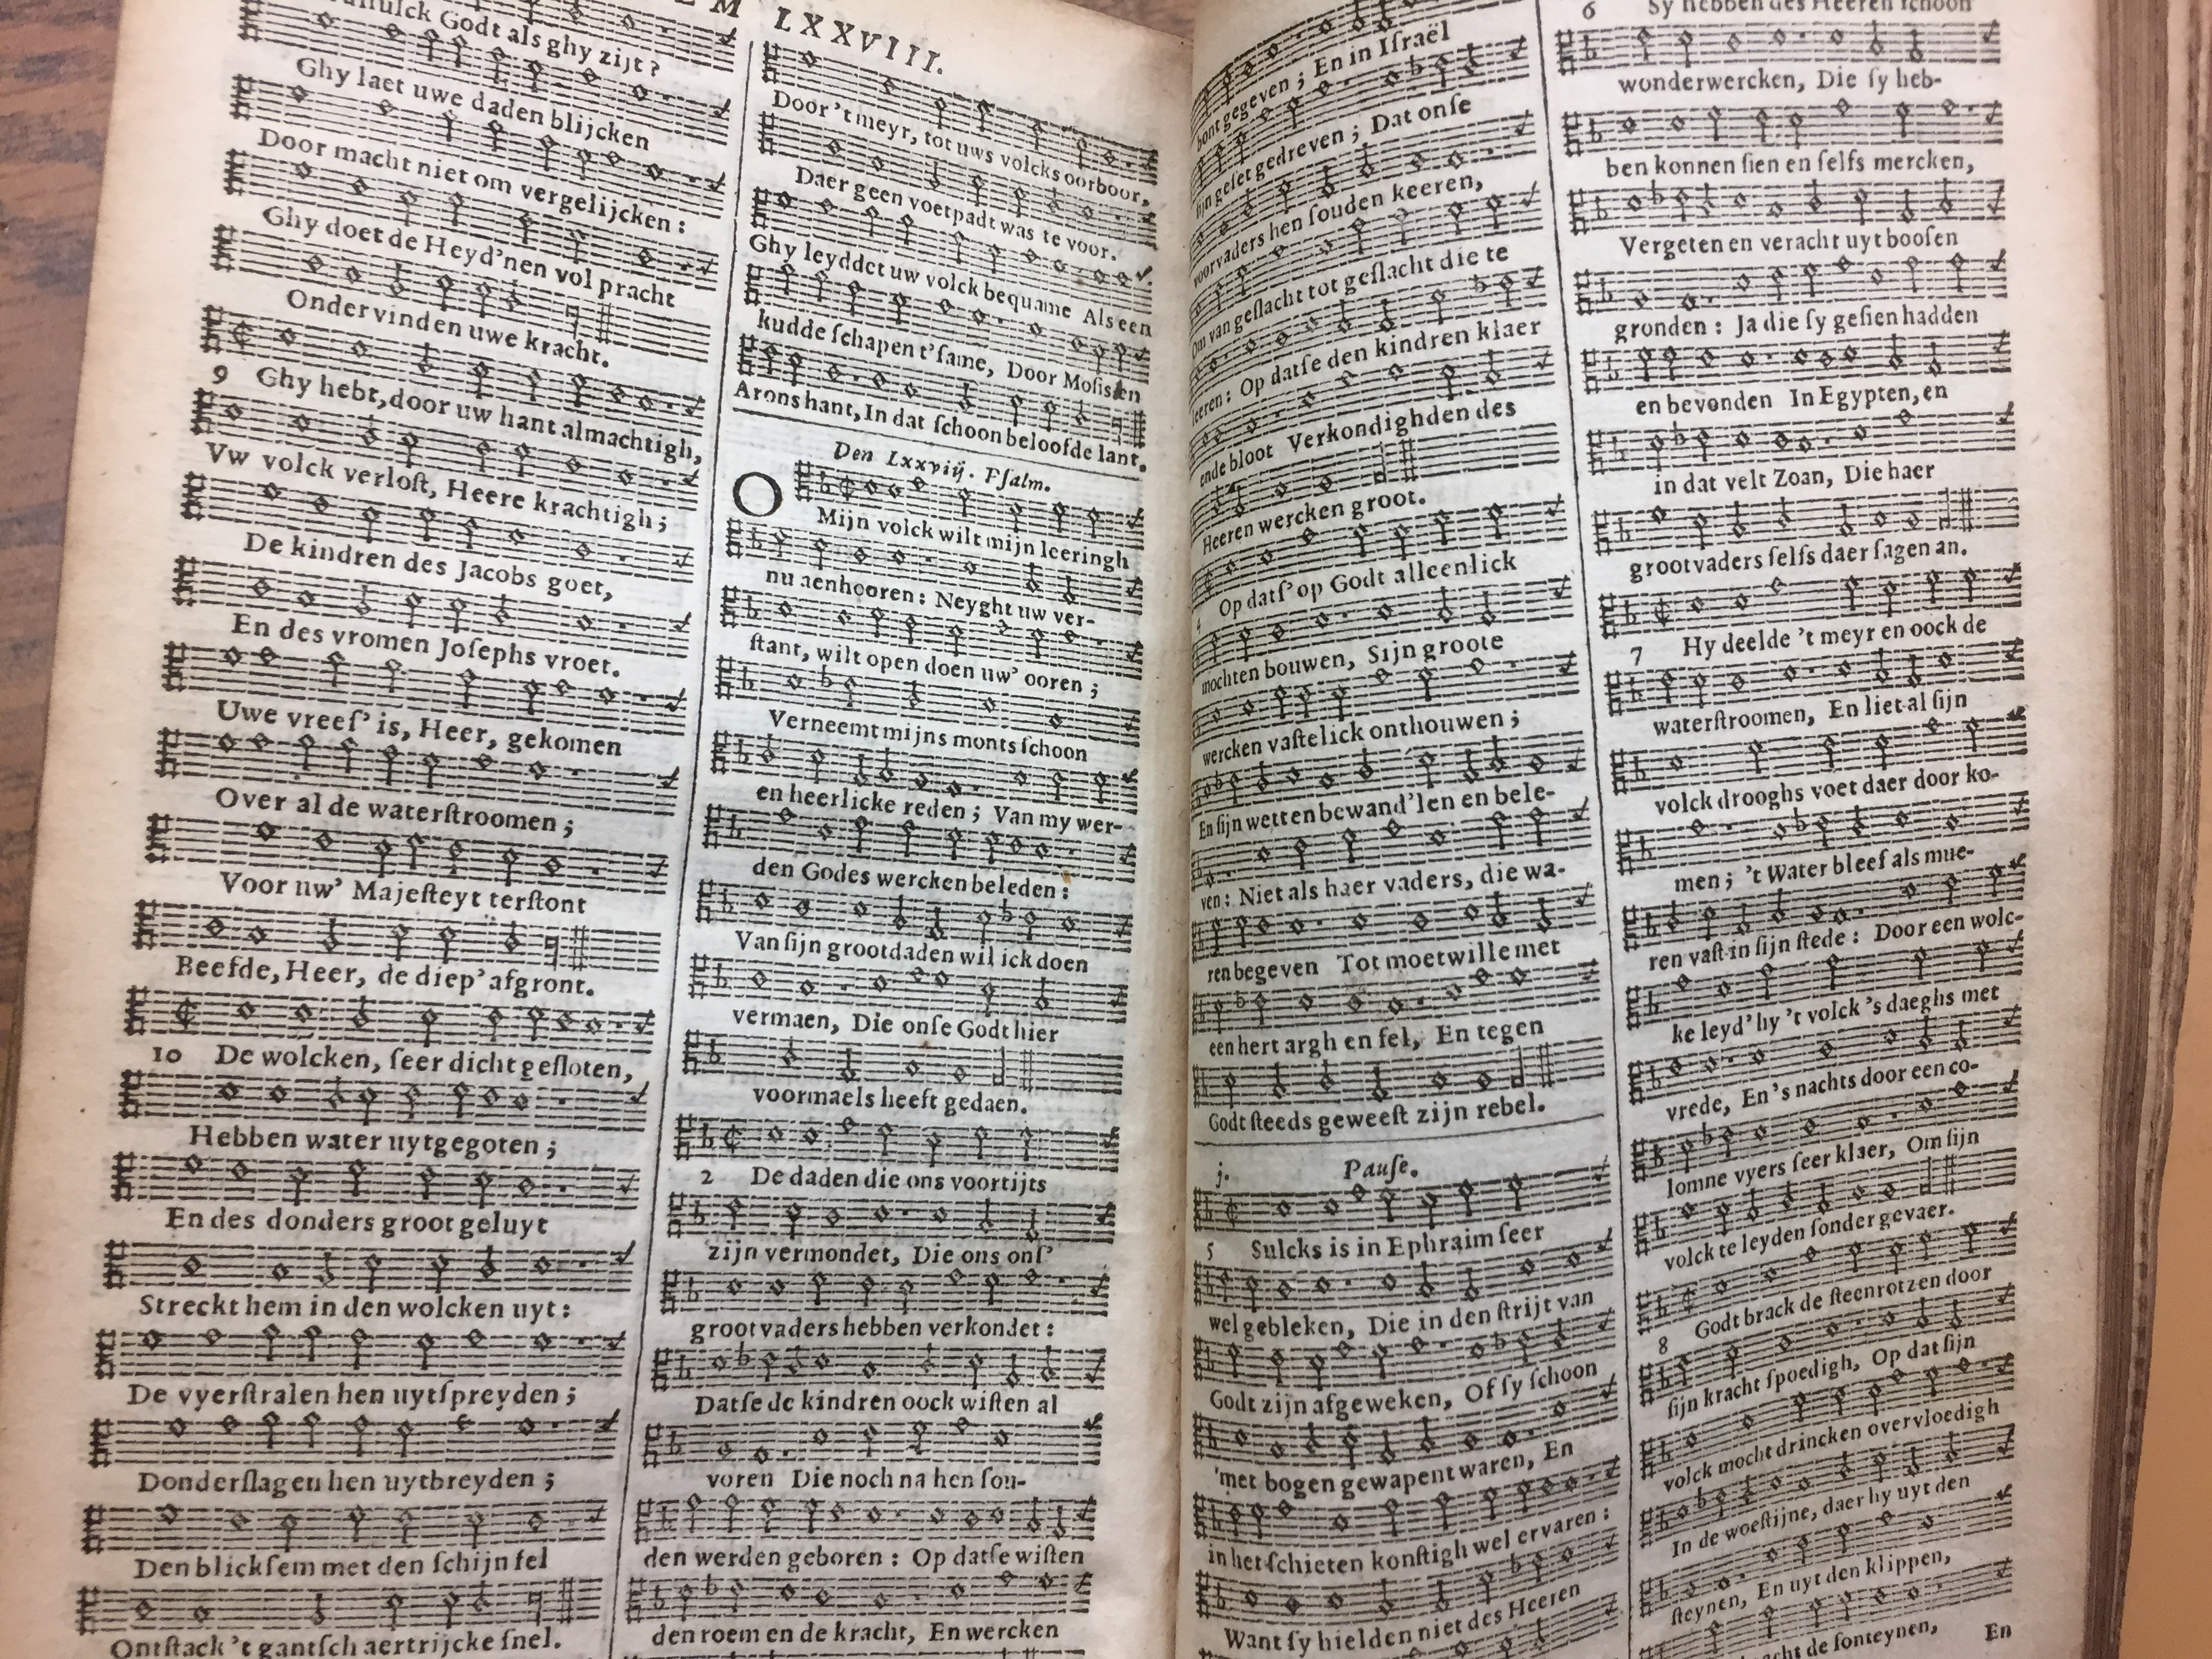 LXXVIII.
Godt als ghy zijt?
Ghy laet uwe daden blijcken
Door macht niet om vergelijcken:
Ghy doet de Heyd'nen vol pracht
Ondervinden uwe kracht.
9 Ghy hebt, door uw hant almachtigh,
Vw volck verloſt, Heere krachtigh;
De kindren des Jacobs goet,
En des vromen Joſephs vroet.
Uwe vreeſ' is, Heer, gekomen
Over al de waterſtroomen;
Voor uw' Majeſteyt terſtont
Beefde, Heer, de diep' afgront.
10 De wolcken, ſeer dicht geſloten,
Hebben water uytgegoten;
En des donders groot geluyt
Streckt hem in den wolcken uyt:
De vyerſtralen hen uytſpreyden;
Donderſlagen hen uytbreyden;
Den blickſem met den ſchijn fel
Ontſtack 't gantſch aertrijcke ſnel.
Door 't meyr, tot uws volcks oorboor,
Daer geen voetpadt was te voor.
Ghy leyddet uw volck bequame Als een
kudde ſchapen t'ſame, Door Moſis en
Arons hant, In dat ſchoon beloofde lant.
Den Lxxviij. Pſalm.
O Mijn volck wilt mijn leeringh
nu aenhooren: Neyght uw ver-
ſtant, wilt open doen uw' ooren;
Verneemt mijns monts ſchoon
en heerlicke reden; Van my wer-
den Godes wercken beleden:
Van ſijn grootdaden wil ick doen
vermaen, Die onſe Godt hier
voormaels heeft gedaen.
2 De daden die ons voortijts
zijn vermondet, Die ons onſ'
grootvaders hebben verkondet:
Datſe de kindren oock wiſten al
voren Die noch na hen ſou-
den werden geboren: Op datſe wiſten
den roem en de kracht, En wercken
bont gegeven; En in Iſraël
ſijn geſet gedreven; Dat onſe
voorvaders hen ſouden keeren,
Om van geſlacht tot geſlacht die te
leeren: Op datſe den kindren klaer
ende bloot Verkondighden des
Heeren wercken groot.
4 Op datſ' op Godt alleenlick
mochten bouwen, Sijn groote
wercken vaſtelick onthouwen;
En ſijn wetten bewand'len en bele-
ven: Niet als haer vaders, die wa-
ren begeven Tot moetwille met
een hert argh en fel, En tegen
Godt ſteeds geweeſt zijn rebel.
j. Pauſe.
5 Sulcks is in Ephraim ſeer
wel gebleken, Die in den ſtrijt van
Godt zijn afgeweken, Of ſy ſchoon
met bogen gewapent waren, En
in het ſchieten konſtigh wel ervaren:
Want ſy hielden niet des Heeren
6 Sy hebben des Heeren ſchoon
wonderwercken, Die ſy heb-
ben konnen ſien en ſelfs mercken,
Vergeten en veracht uyt booſen
gronden: Ja die ſy geſien hadden
en bevonden In Egypten, en
in dat velt Zoan, Die haer
grootvaders ſelfs daer ſagen an.
7 Hy deelde 't meyr en oock de
waterſtroomen, En liet al ſijn
volck drooghs voet daer door ko-
men; 't Water bleef als mue-
ren vaſt in ſijn ſtede: Door een wolc-
ke leyd' hy 't volck 's daeghs met
vrede, En 's nachts door een co-
lomne vyers ſeer klaer, Om ſijn
volck te leyden ſonder gevaer.
8 Godt brack de ſteenrotzen door
ſijn kracht ſpoedigh, Op dat ſijn
volck mocht drincken overvloedigh
In de woeſtijne, daer hy uyt den
ſteynen, En uyt den klippen,
de fonteynen, En